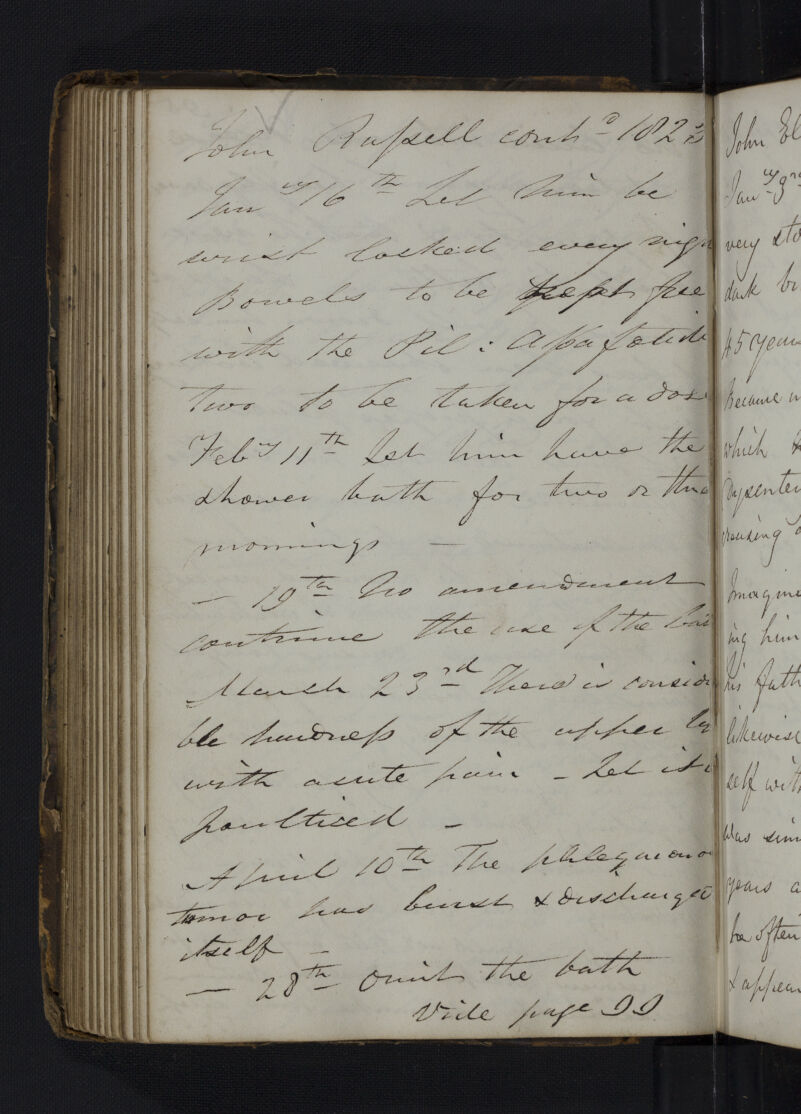 John Russell contd 1823
Jany 16th Let him be
wrist locked every nigh
Bowels to be kept free
with the Pil: Assafœtida
two to be taken for a dose
Feby 11th Let him have the
shower bath for two or three
mornings —
— 19th No amendment
continue the use of the bath
March 23rd There is consider
ble hardness of the upper
with acute pain - Let it
poulticed -
April 10th The phlegmonou
tumor has burst & discharged
itself -
— 28th omit the bath
Vide page 99
John El
Jany 3rd
very sto
dark
45 years
became
which
Dysenter
Imagine
ing him
his fath
likewise
self with
was
years a
he often
& appear